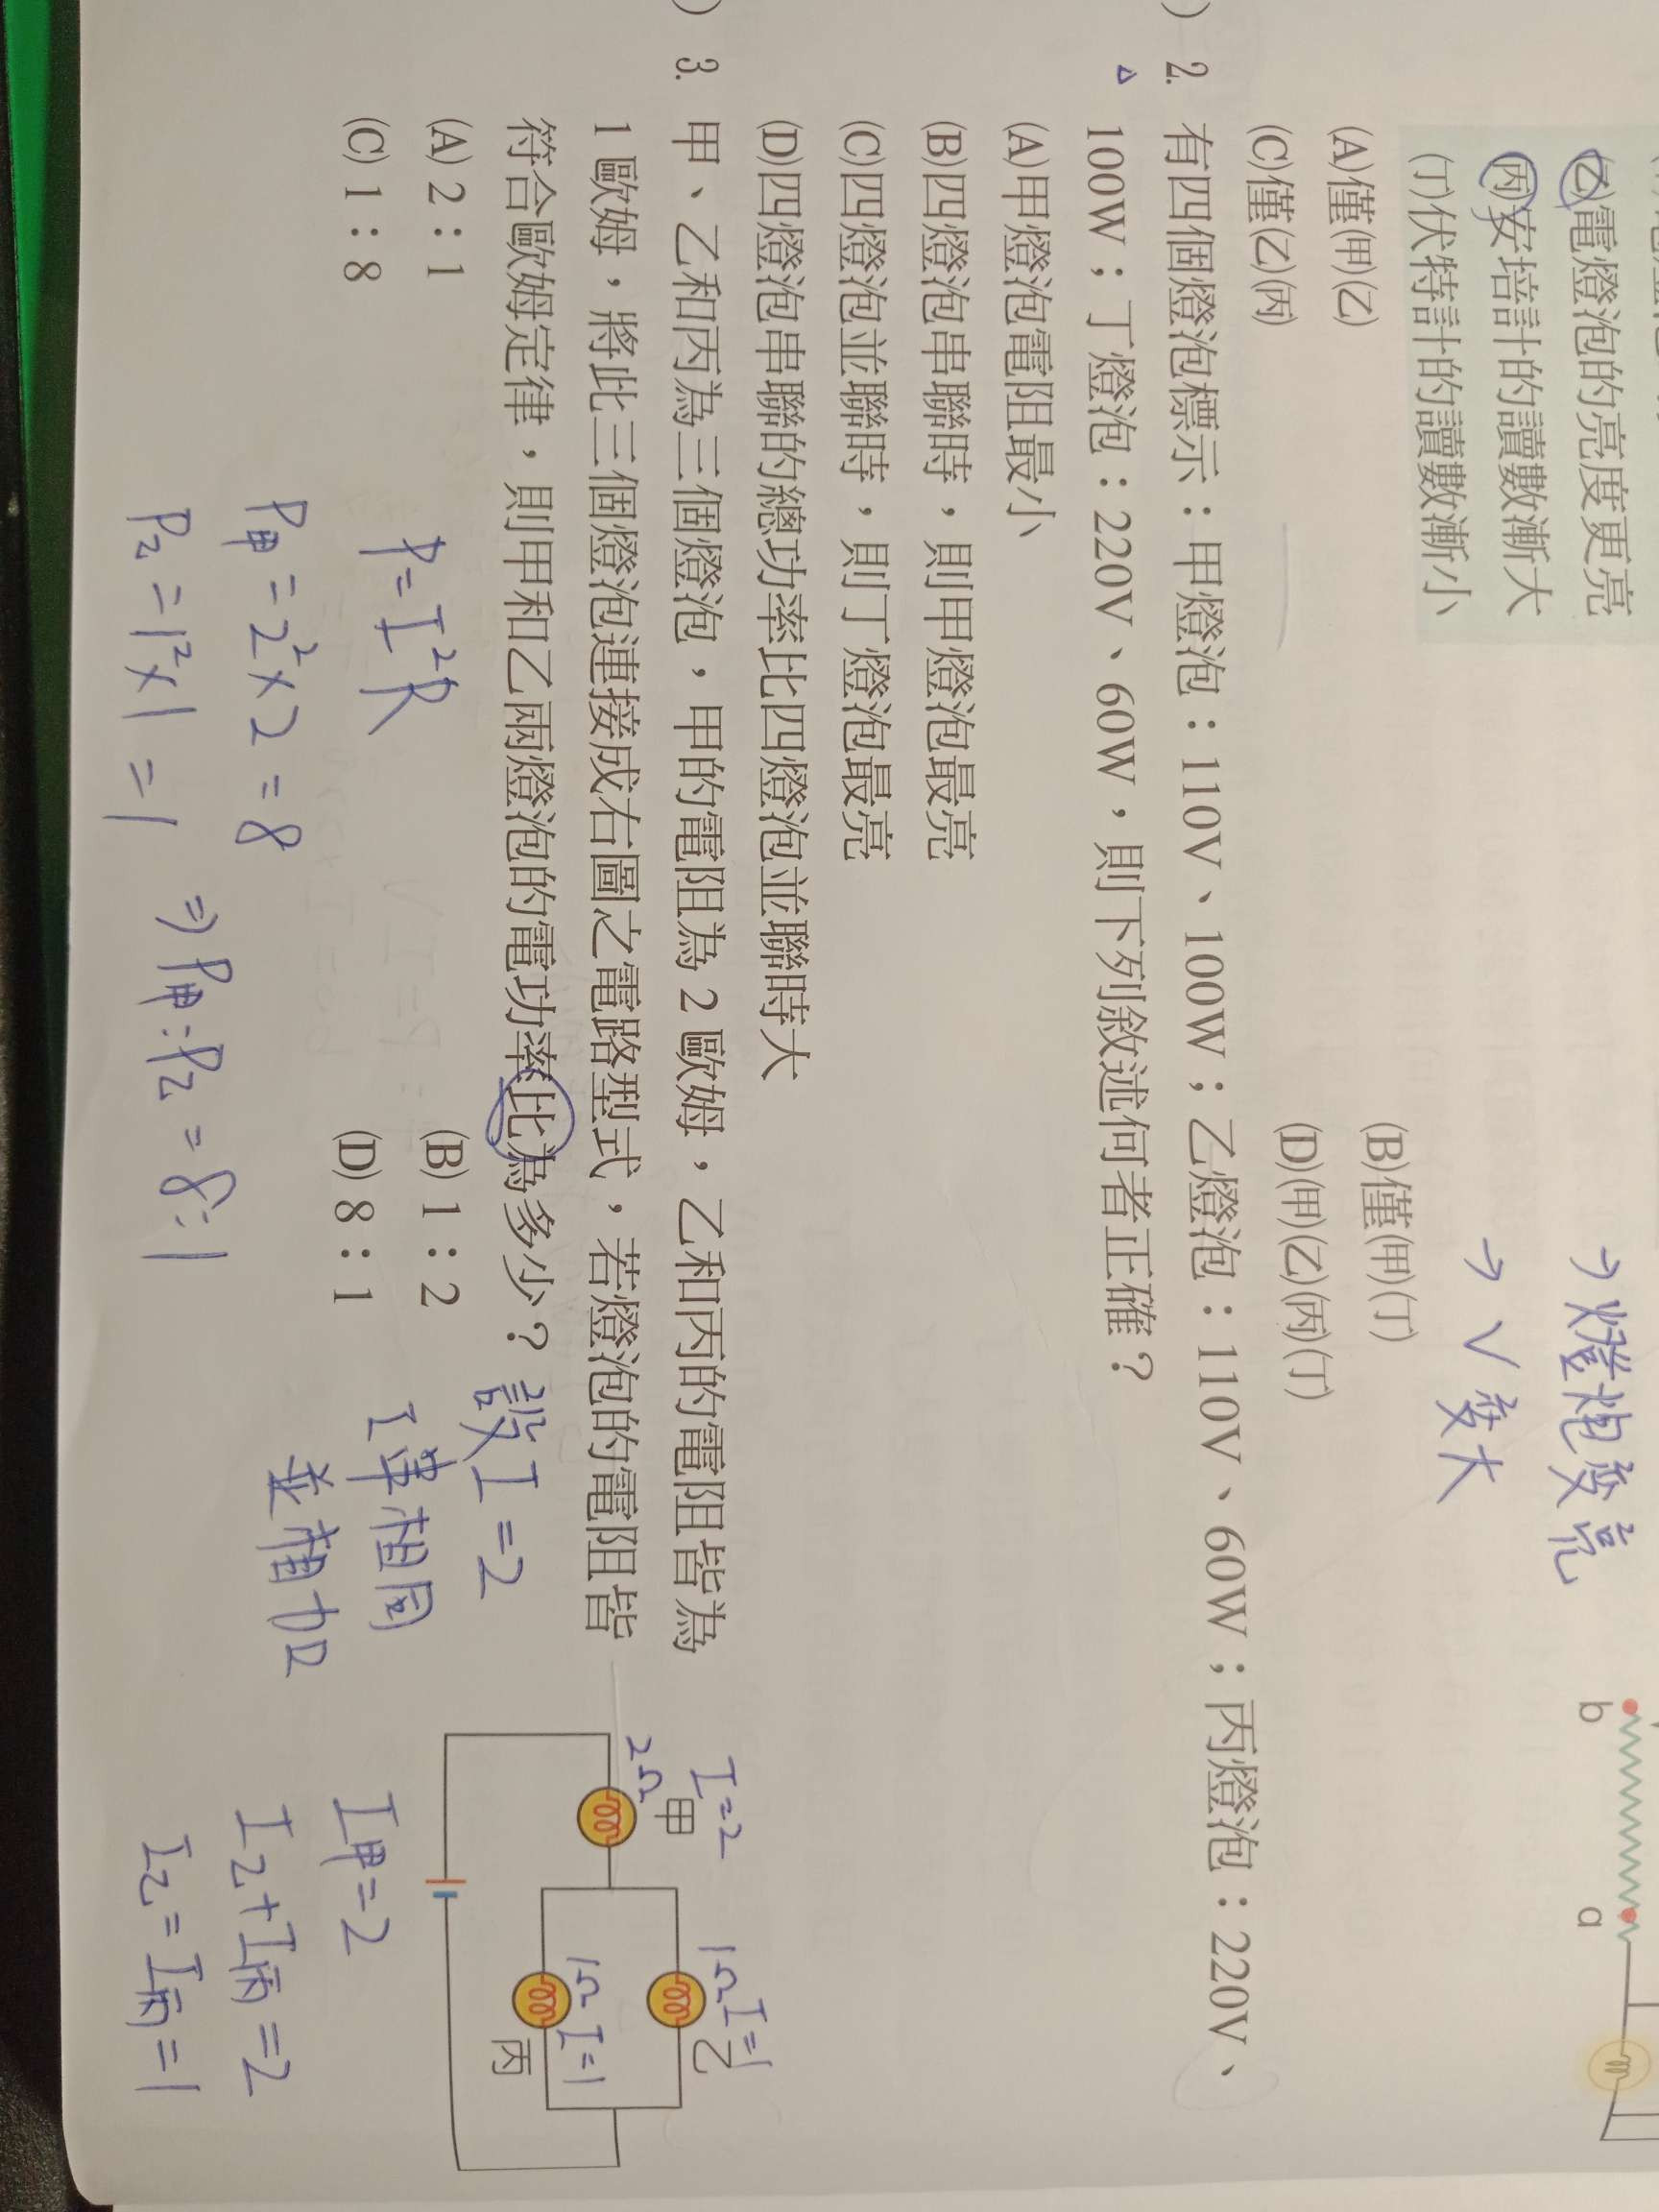 (乙)電燈泡的亮度更亮 → 燈炮变亮
(丙)安培計的讀數漸大
(丁)伏特計的讀數漸小 → V 变大
(A)僅(甲)(乙) (B)僅(甲)(丁)
(C)僅(乙)(丙) (D)(甲)(乙)(丙)(丁)
b a
) 2. 有四個燈泡標示：甲燈泡：110V、100W；乙燈泡：110V、60W；丙燈泡：220V、
100W；丁燈泡：220V、60W，則下列敘述何者正確？
(A)甲燈泡電阻最小
(B)四燈泡串聯時，則甲燈泡最亮
(C)四燈泡並聯時，則丁燈泡最亮
(D)四燈泡串聯的總功率比四燈泡並聯時大
) 3. 甲、乙和丙為三個燈泡，甲的電阻為 2 歐姆，乙和丙的電阻皆為
1 歐姆，將此三個燈泡連接成右圖之電路型式，若燈泡的電阻皆
符合歐姆定律，則甲和乙兩燈泡的電功率比為多少？
(A) 2：1 (B) 1：2
(C) 1：8 (D) 8：1
設I=2
I串相同
並相加
P=I²R
P甲=2²×2=8
P乙=1²×1=1
⇒P甲:P乙=8:1
I=2
甲
2Ω
1Ω I=1
乙
1Ω I=1
丙
I甲=2
I乙+I丙=2
I乙=I丙=1